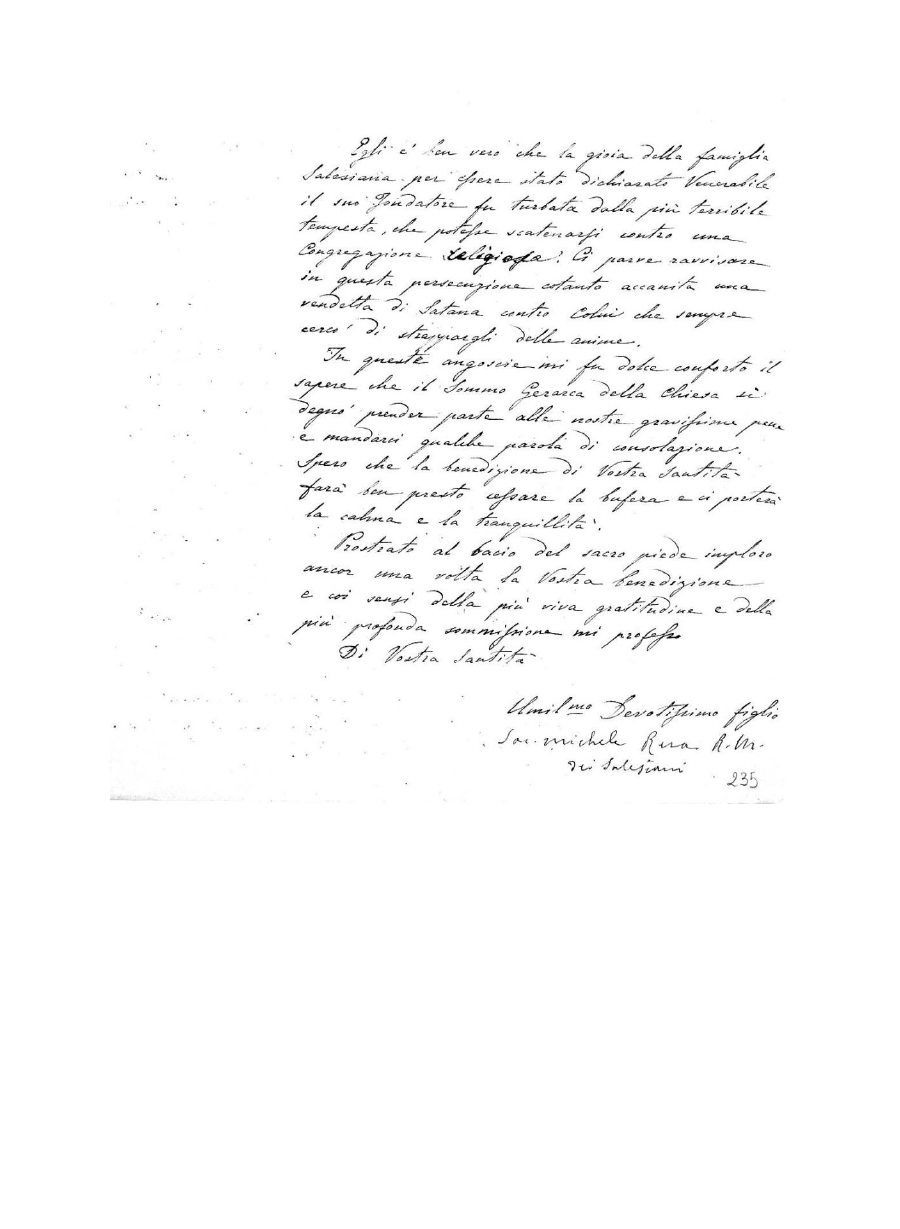 Egli è ben vero che la gioia della famiglia
Salesiana per essere stato dichiarato Venerabile
il suo Fondatore fu turbata dalla più terribile
tempesta, che potesse scatenarsi contro una
Congregazione religiosa. Ci parve ravvisare
in questa persecuzione cotanto accanita una
vendetta di Satana contro Colui che sempre
cercò di strappargli delle anime.
In queste angoscie mi fu dolce conforto il
sapere che il Sommo Gerarca della Chiesa si
degnò prender parte alle nostre gravissime pene
e mandarci qualche parola di consolazione.
Spero che la benedizione di Vostra Santità
farà ben presto cessare la bufera e ci porterà
la calma e la tranquillità.
Prostrato al bacio del sacro piede imploro
ancor una volta la Vostra benedizione
e coi sensi della più viva gratitudine e della
più profonda sommissione mi professo
Di Vostra Santità
Umilmo Devotissimo figlio
Sac. Michele Rua R. M.
dei Salesiani
235